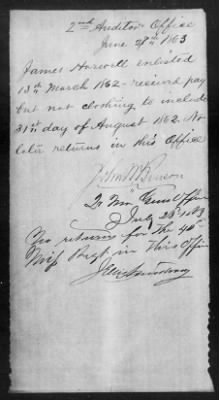 2nd Auditor's Office
June 27th 1863
James Haswell enlisted
13th March 1862 - received pay
but not clothing to include
31st day of August 1862. No
later returns in this Office
Benson
Qr Mr Genl Office
July 28th 1863
No returns for the 40th
Miss Regt in this Office